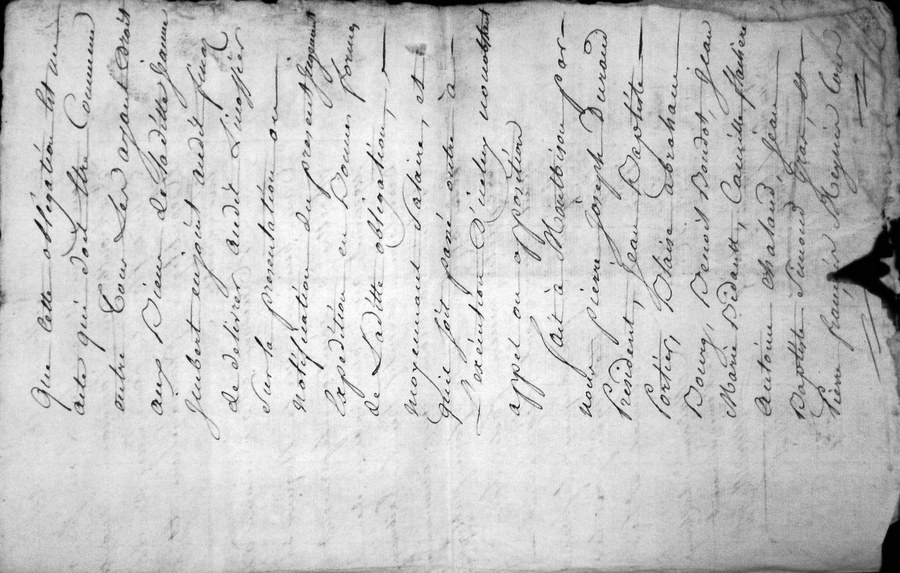 Que cette obligation est un
acte qui doit être Commun
entre Tous Les ayant droit
aux Biens de Laditte Jeanne
Jmbert enjoint audit finaz
de delivrer audit L'huissier
Sur la presentation ou
notification du present Jugement
Expédition en Bonne forme
de Laditte obligation,
moyennant Salaire, et
qu'il soit passé outre à
L'exécution D'icelui nonobstant
appel ou opposition
fait à Montbrison par
nous pierre Joseph Durand
President, Jean Baptiste
Portier, Blaise abraham
Bourg, Benoit Boudot, Jean
Marie Bidault, Camille
Antoine chaland, Jean
Baptiste Simond Gras, et
Pierre françois Regnier Cour